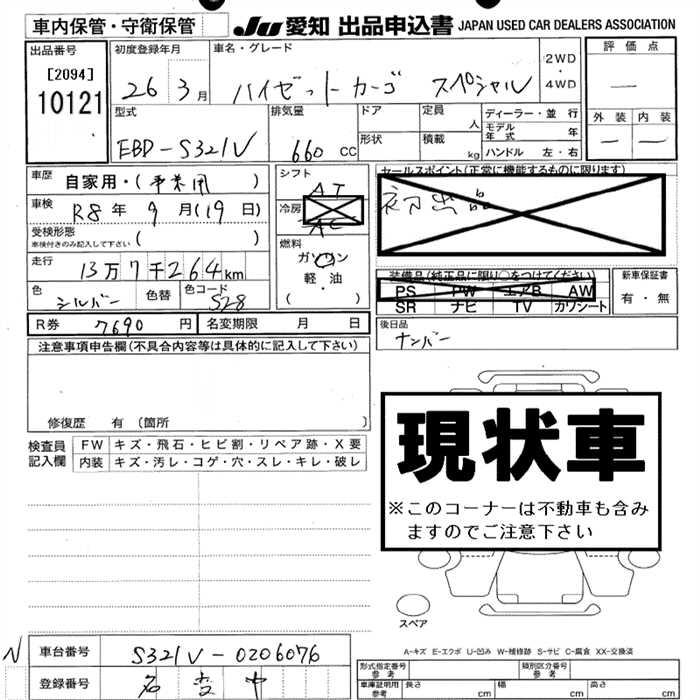 車内保管・守衛保管
JU 愛知 出品申込書 JAPAN USED CAR DEALERS ASSOCIATION
出品番号
[2094]
10121
初度登録年月
26 3月
車名・グレード
ハイゼットカーゴ スペシャル
2WD
・
4WD
評価点
—
外装 内装
— —
型式
EBD-S321V
排気量
660 CC
ドア
形状
定員
人
積載
kg
ディーラー・並行
モデル年式 年
ハンドル 左・右
車歴
自家用・(事業用 )
車検
R8年 9月(19日)
受検形態
車検付きのみ記入して下さい ( )
走行
13万7千264km
色
シルバー
色替
色コード
S28
シフト
AT
冷房
AC
燃料
ガソリン
軽・油
( ・ )
セールスポイント(正常に機能するものに限ります)
初出品
装備品(純正品に限り○をつけてください)
PS PW エアB AW
SR ナビ TV カワシート
新車保証書
有・無
R券 7690 円
名変期限 月 日
後日品
ナンバー
注意事項申告欄(不具合内容等は具体的に記入して下さい)
修復歴 有(箇所 )
検査員
記入欄
FW キズ・飛石・ヒビ割・リペア跡・X要
内装 キズ・汚レ・コゲ・穴・スレ・キレ・破レ
現状車
※このコーナーは不動車も含み
ますのでご注意下さい
スペア
A-キズ E-エクボ U-凹み W-補修跡 S-サビ C-腐食 XX-交換済
N
車台番号 S321V-0206076
登録番号
形式指定番号
参考
類別区分番号
参考
車庫証明用
参考
長さ cm
幅 cm
高さ cm